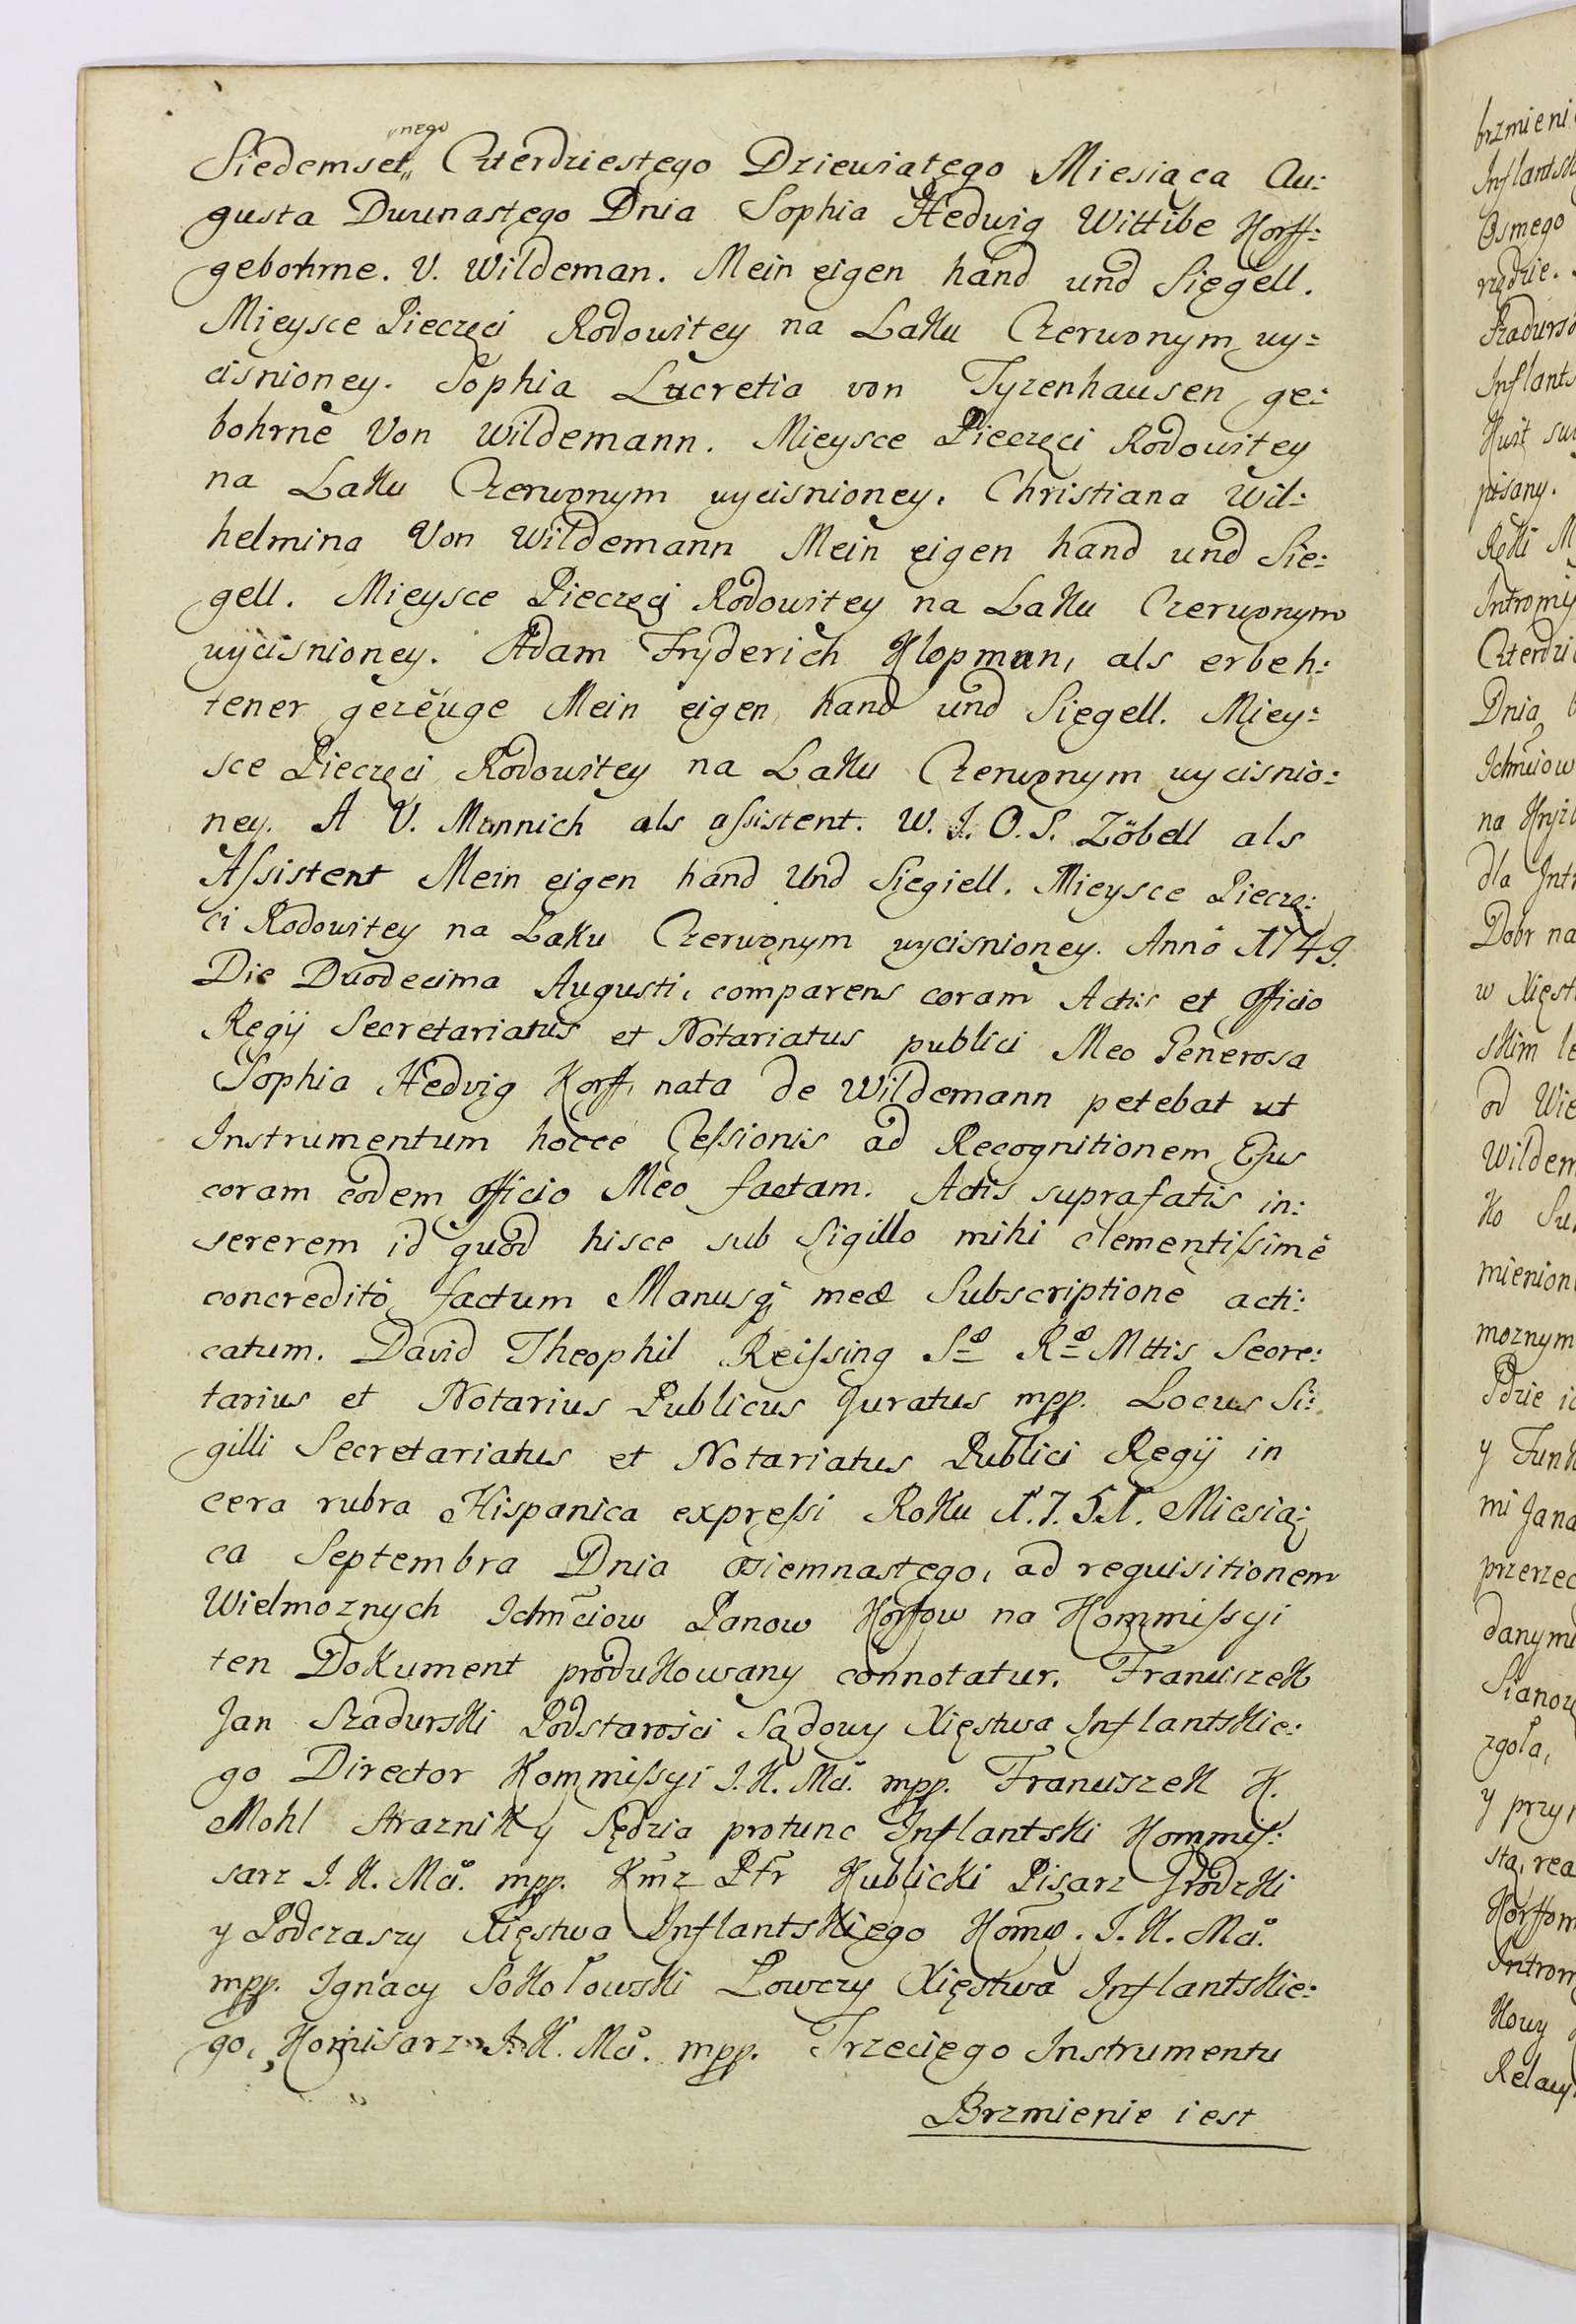 nego
Siedemset„ Czterdziestego Dziewiątego Miesiąca Au:
gusta Dwunastego Dnia Sophia Hedwig Wittibe Korff:
gebohrne. V. Wildeman. Mein eigen hand und Siegell.
Mieysce Pieczęci Rodowitey na Laku Czerwonym wy:
cisnioney. Sophia Lucretia von Tyzenhausen ge:
bohrne Von Wildemann. Mieysce Pieczęci Rodowitey
na Laku Czerwonym wycisnioney. Christiana Wil:
helmina Von Wildemann Mein eigen hand und Sie:
gell. Mieysce Pieczęci Rodowitey na Laku Czerwonym
wycisnioney. Adam Fryderich Klopman, als erbeh:
tener gezeuge Mein eigen hand und Siegell. Miey:
sce Pieczęci Rodowitey na Laku Czerwonym wycisnio:
ney. A V. Mannich als assistent. W. J. O. S. Zöbell als
Assistent Mein eigen hand Und Siegiell. Mieysce Piecze:
ci Rodowitey na Laku Czerwonym wycisnioney. Annô 1749.
Die Duodecima Augusti, comparens coram Actis et Officio
Regÿ Secretariatus et Notariatus publici Meo Generosa
Sophia Hedvig Korff, nata de Wildemann petebat ut
Instrumentum hocce Cessionis ad Recognitionem Ejus
coram eodem Officio Meo factam. Actis suprafatis in:
sererem id quod hisce sub Sigillo mihi clementissimè
concreditô factum Manusq; meæ Subscriptione acti:
catum. David Theophil Reissing S° R° Mttis Secre:
tarius et Notarius Publicus Juratus mpp. Locus Si:
gilli Secretariatus et Notariatus Publici Regÿ in
cera rubra Hispanica expressi Roku 1.7.51. Miesią:
ca Septembra Dnia osiemnastego, ad requisitionem
Wielmoznych Ichmciow Panow Korfow na Kommissyi
ten Dokument produkowany connotatur. Franciszek
Jan Szadurski Podstarości Sądowy Xięstwa Inflantskie:
go Director Kommissyi J. K. Mci. mpp. Franciszek K.
Mohl Straznik y Sędzia protunc Inflantski Kommis:
sarz J. K. Mci. mpp. Kmz Ptr Kublicki Pisarz Grodzki
y Podczaszy Xięstwa Inflantskiego J. K. Mci.
mpp. Ignacy Sokołowski Łowczy Xięstwa Inflantskie:
go, Komisarz J. K. Mci. mpp. Trzeciego Instrumentu
Brzmienie iest
brzmieni
Osmego
Inflants
pisany.
Dnia
dla Intr
Dobr na
skim
od Wie
Wildem
moznym
mi Jana
przerzec
danymi
zgoła,
y przy